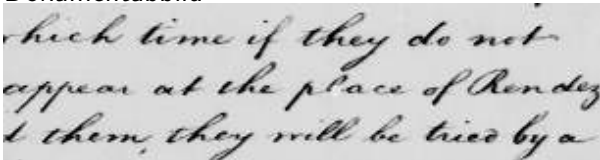 which time if they do not
appear at the place of Rendez
them, they will be tried by a